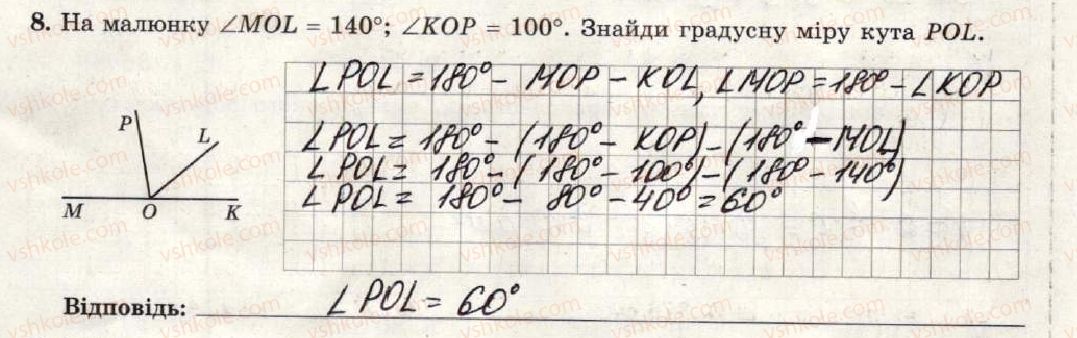 8. На малюнку ∠MOL = 140°; ∠KOP = 100°. Знайди градусну міру кута POL.
∠POL = 180° - MOP - KOL, ∠MOP = 180° - ∠KOP
∠POL = 180° - (180° - KOP) - (180° - MOL)
∠POL = 180° - (180° - 100°) - (180° - 140°)
∠POL = 180° - 80° - 40° = 60°
P
L
M
O
K
Відповідь: ∠POL = 60°
vshkole.com